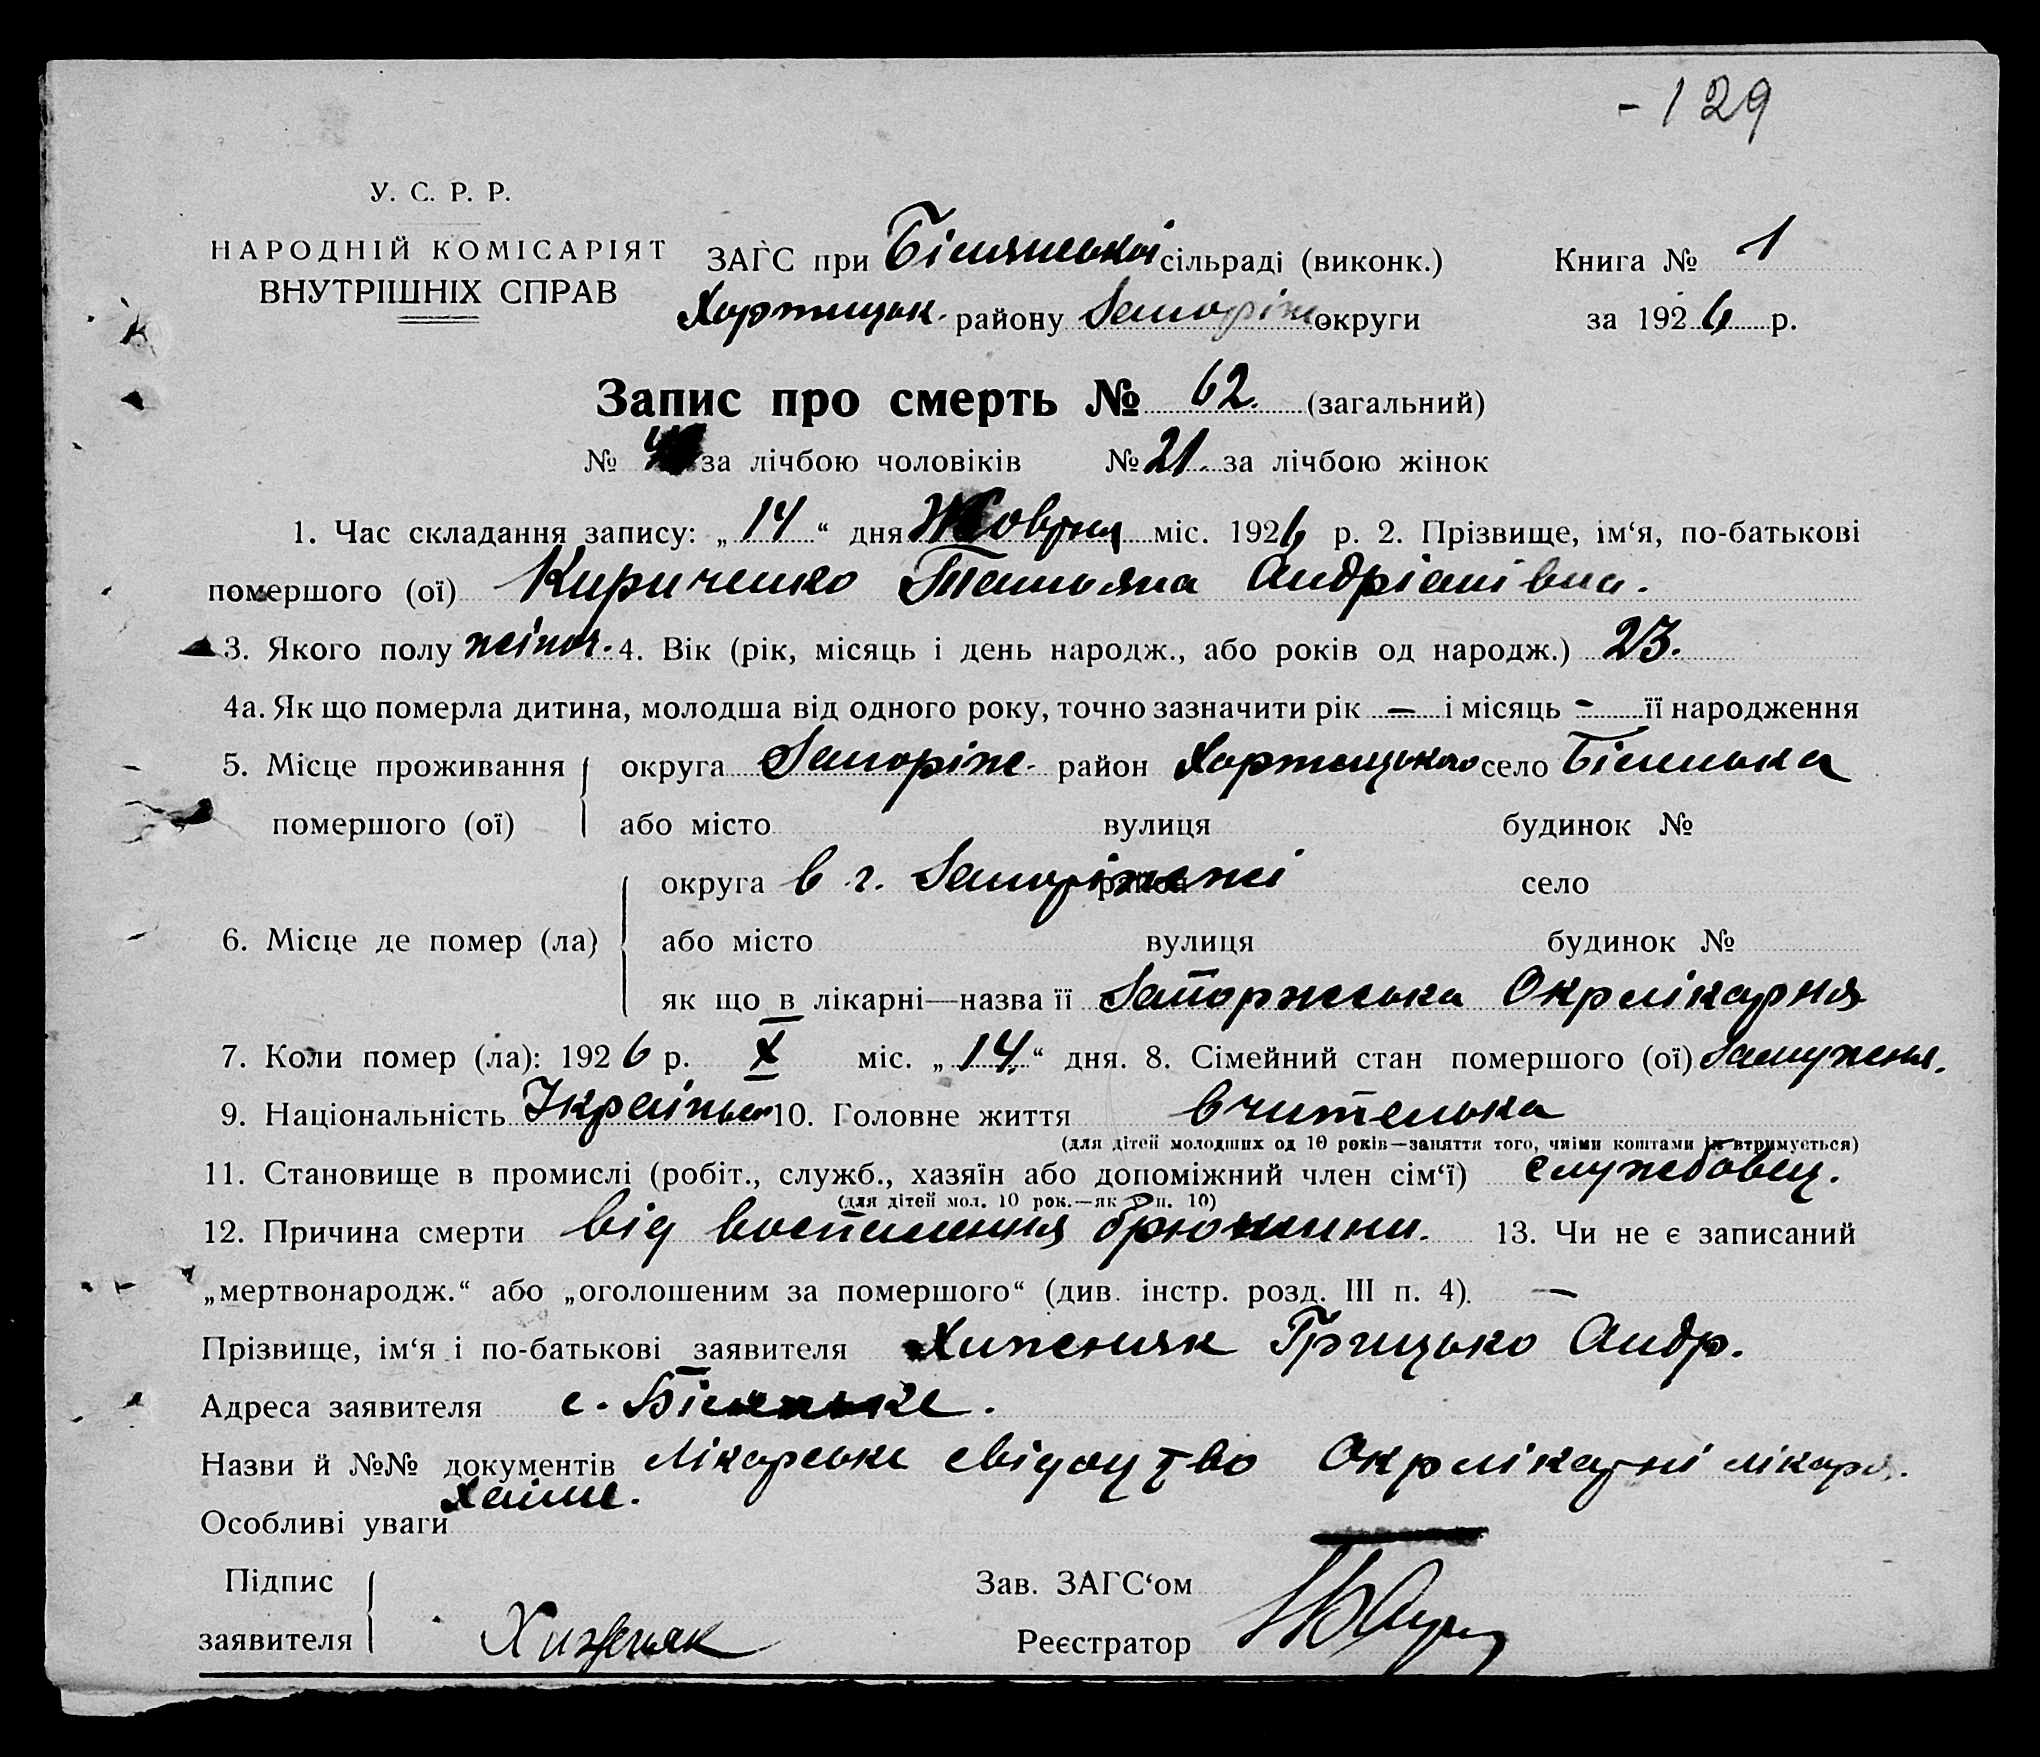 - 129
У. С. Р. Р.
НАРОДНІЙ КОМІСАРІЯТ
ВНУТРІШНІХ СПРАВ
ЗАГС при Біляньской сільраді (виконк.) Книга № 1
Хортицьк. району Запоріж округи за 1926 р.
Запис про смерть № 62. (загальний)
№ за лічбою чоловіків № 21. за лічбою жінок
1. Час складання запису: „14“ дня Жовтня міс. 1926 р. 2. Прізвище, ім‘я, по-батькові
помершого (ої) Кириченко Татьяна Андріанівна.
3. Якого полу жіноч. 4. Вік (рік, місяць і день народж., або років од народж.) 23.
4а. Як що померла дитина, молодша від одного року, точно зазначити рік — і місяць - її народження
5. Місце проживання округа Запоріж. район Хортицького село Біленька
помершого (ої) або місто вулиця будинок №
округа в г. Запоріжжі район село
6. Місце де помер (ла) або місто вулиця будинок №
як що в лікарні—назва її Запоржська Окрлікарня
7. Коли помер (ла): 1926 р. X міс. „14.“ дня. 8. Сімейний стан помершого (ої) Замужня.
9. Національність Україньк 10. Головне життя вчителька
(для дітей молодших од 10 років—заняття того, чиїми коштами їх втримується)
11. Становище в промислі (робіт., служб., хазяїн або допоміжний член сім‘ї) службовец.
(для дітей мол. 10 рок.—як в п. 10)
12. Причина смерти від воспалення брюшини. 13. Чи не є записаний
„мертвонародж.“ або „оголошеним за помершого“ (див. інстр. розд. III п. 4). —
Прізвище, ім‘я і по-батькові заявителя Хиженяк Грицько Андр.
Адреса заявителя с. Біленьке.
Назви й №№ документів Лікарське свідоцтво Окрлікарні лікаря.
Особливі уваги
Підпис Зав. ЗАГС‘ом
заявителя Хиженяк Реєстратор